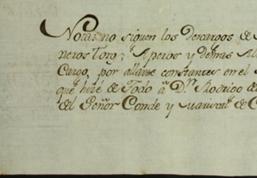 Nota: no siguen los Descargos de
neros Toro; Aperos y demas
Cargo, por allarse constantes en el
que hice de Todo a Dn. Rodrigo de
del Señor Conde y